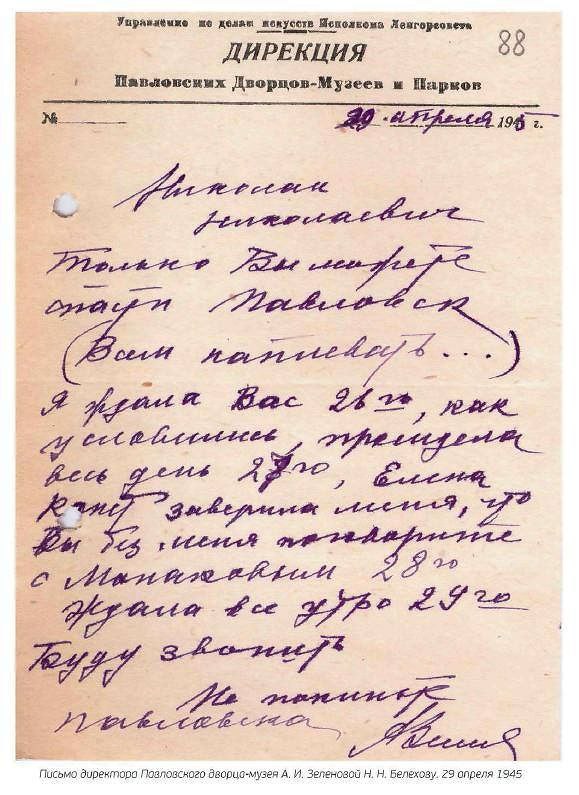 Управление по делам искусств Исполкома Ленгорсовета
88
ДИРЕКЦИЯ
Павловских Дворцов-Музеев и Парков
№
29 апреля 1945 г.
Николай
Николаевич
Только Вы можете
спасти Павловск
(Всем наплевать...)
Я ждала Вас 26го, как
условились, просидела
весь день 27го, Елена
заверила меня, что
Вы без меня поговорите
с Монаховым 28го
Ждала все утро 29го
Буду звонить
Не покиньте
Павловска
Письмо директора Павловского дворца-музея А. И. Зеленовой Н. Н. Белехову. 29 апреля 1945